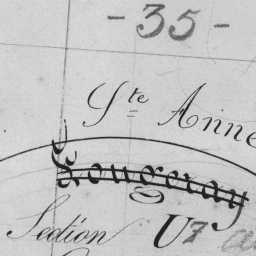 - 35 -
Ste Anne
Fougeray
Section U7